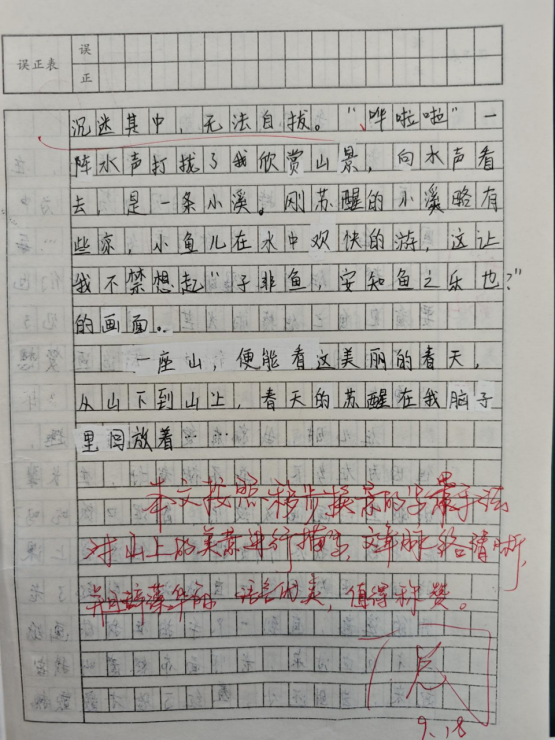 误正表
误
正
沉迷其中，无法自拔。“哗啦啦”一
阵水声打拢了我欣赏山景，向水声看
去，是一条小溪。刚苏醒的小溪略有
些凉，小鱼儿在水中欢快的游，这让
我不禁想起“子非鱼，安知鱼之乐也？”
的画面。
一座山，便能看这美丽的春天，
从山下到山上，春天的苏醒在我脑子
里回放着……
本文按照移步换景的写景手法
对山上的美景进行描写，文章脉络清晰，
并且辞藻华丽，语言优美，值得称赞。
9.18